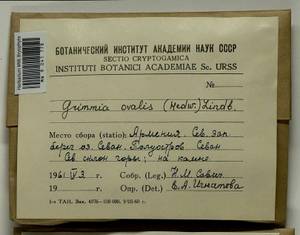 БОТАНИЧЕСКИЙ ИНСТИТУТ АКАДЕМИИ НАУК СССР
SECTIO CRYPTOGAMICA
INSTITUTI BOTANICI ACADEMIAE Sc. URSS
№
Grimmia ovalis (Hedw.) Lindb.
Место сбора (statio): Армения. Сев. зап.
берег оз. Севан. Полуостров Севан
Св. склон горы; на камне
1961 V 3 г. Собр. (Leg.) Н. М. Савич
19 г. Опр. (Det.) Е. А. Игнатова
1-я ТАН. Зак.